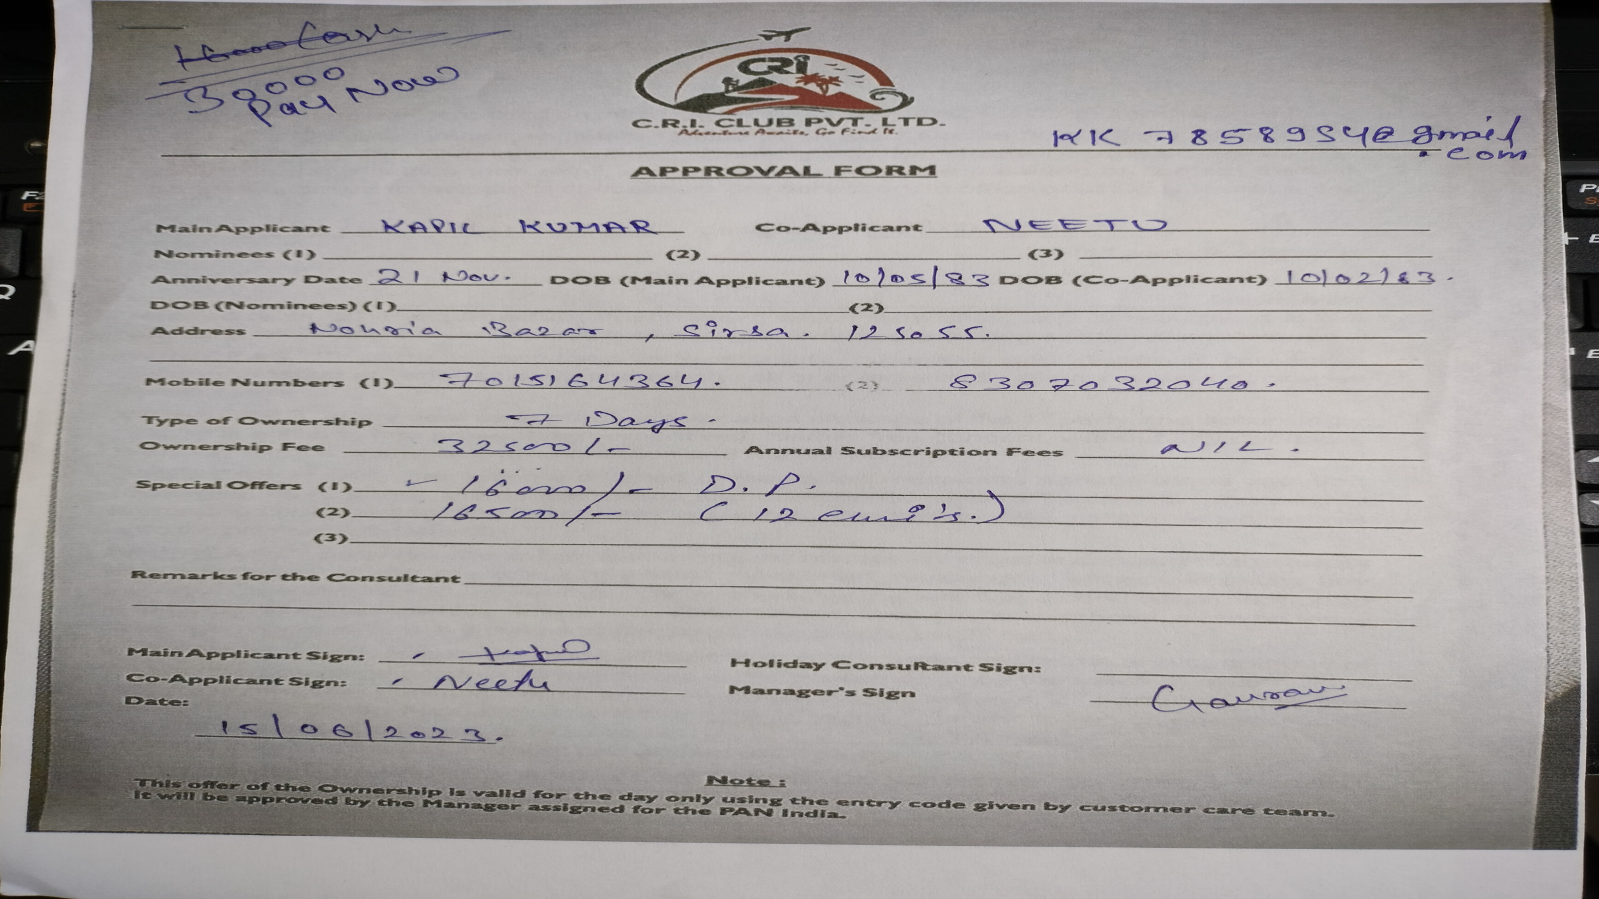 16000 Cash
30000
Pay Now
CRI
C.R.I. CLUB PVT. LTD.
Adventure Awaits, Go Find It.
KK 7858954@gmail
.com
APPROVAL FORM
Main Applicant KAPIL KUMAR Co-Applicant NEETU
Nominees (1) (2) (3)
Anniversary Date 21 Nov. DOB (Main Applicant) 10/05/83 DOB (Co-Applicant) 10/02/83.
DOB (Nominees) (1) (2)
Address Nohria Bazar, Sirsa. 125055.
Mobile Numbers (1) 7015164364. (2) 8307032040.
Type of Ownership 7 Days.
Ownership Fee 32500/- Annual Subscription Fees NIL.
Special Offers (1) 16000/- D.P.
(2) 16500/- (12 emi's.)
(3)
Remarks for the Consultant
Main Applicant Sign: Kapil Holiday Consultant Sign:
Co-Applicant Sign: Neetu Manager's Sign Gaurav
Date:
15/06/2023.
Note :
This offer of the Ownership is valid for the day only using the entry code given by customer care team.
It will be approved by the Manager assigned for the PAN India.